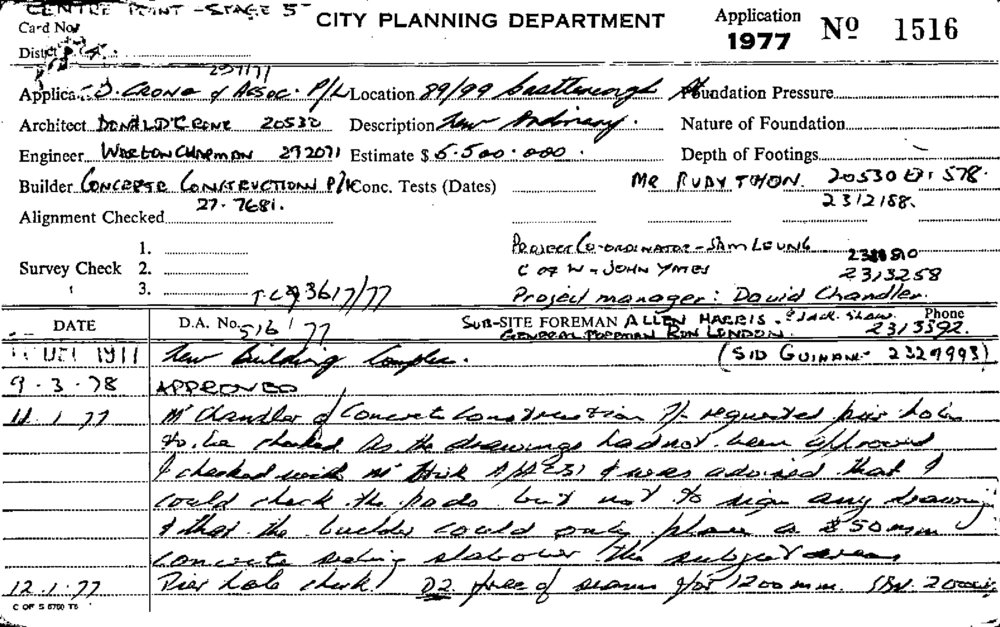 CENTRE POINT - STAGE 5
CITY PLANNING DEPARTMENT
Application
1977 Nº 1516
Card No.
District
Applica. D. CRONE & ASSOC. P/L Location 89/99 Castlereagh St Foundation Pressure
Architect DONALD CRONE 20530 Description New Ordinary. Nature of Foundation
Engineer WARTON CHAPMAN 292071 Estimate $ 5.500.000. Depth of Footings
Builder CONCRETE CONSTRUCTION P/L Conc. Tests (Dates) MR RUDY 20530 578.
27.7681. 2312188.
Alignment Checked
1. PROJECT CO-ORDINATOR - SAM LEUNG
Survey Check 2. C OF W - JOHN YATES 2313258
3. 3617/77 Project manager: David Chandler.
DATE D.A. No. 516/77 SUB-SITE FOREMAN ALLEN HARRIS. & Jack Shaw. Phone
GENERAL FOREMAN RON LENDON 2313392.
DEC 1977 New Building Complex. (SID GUINAN - 2329993)
9.3.78 APPROVED
11.1.77 Mr Chandler of Concrete Construction P/L requested pier holes
to be checked. As the drawings had not been approved
I checked with Mr & was advised that I
could check the pads but not to sign any drawing
& that the builder could only place a 50mm
concrete sealing slab over the subject areas
12.1.77 Pier hole check! D2 free of seams for 1200mm.
C OF S 6700 T6